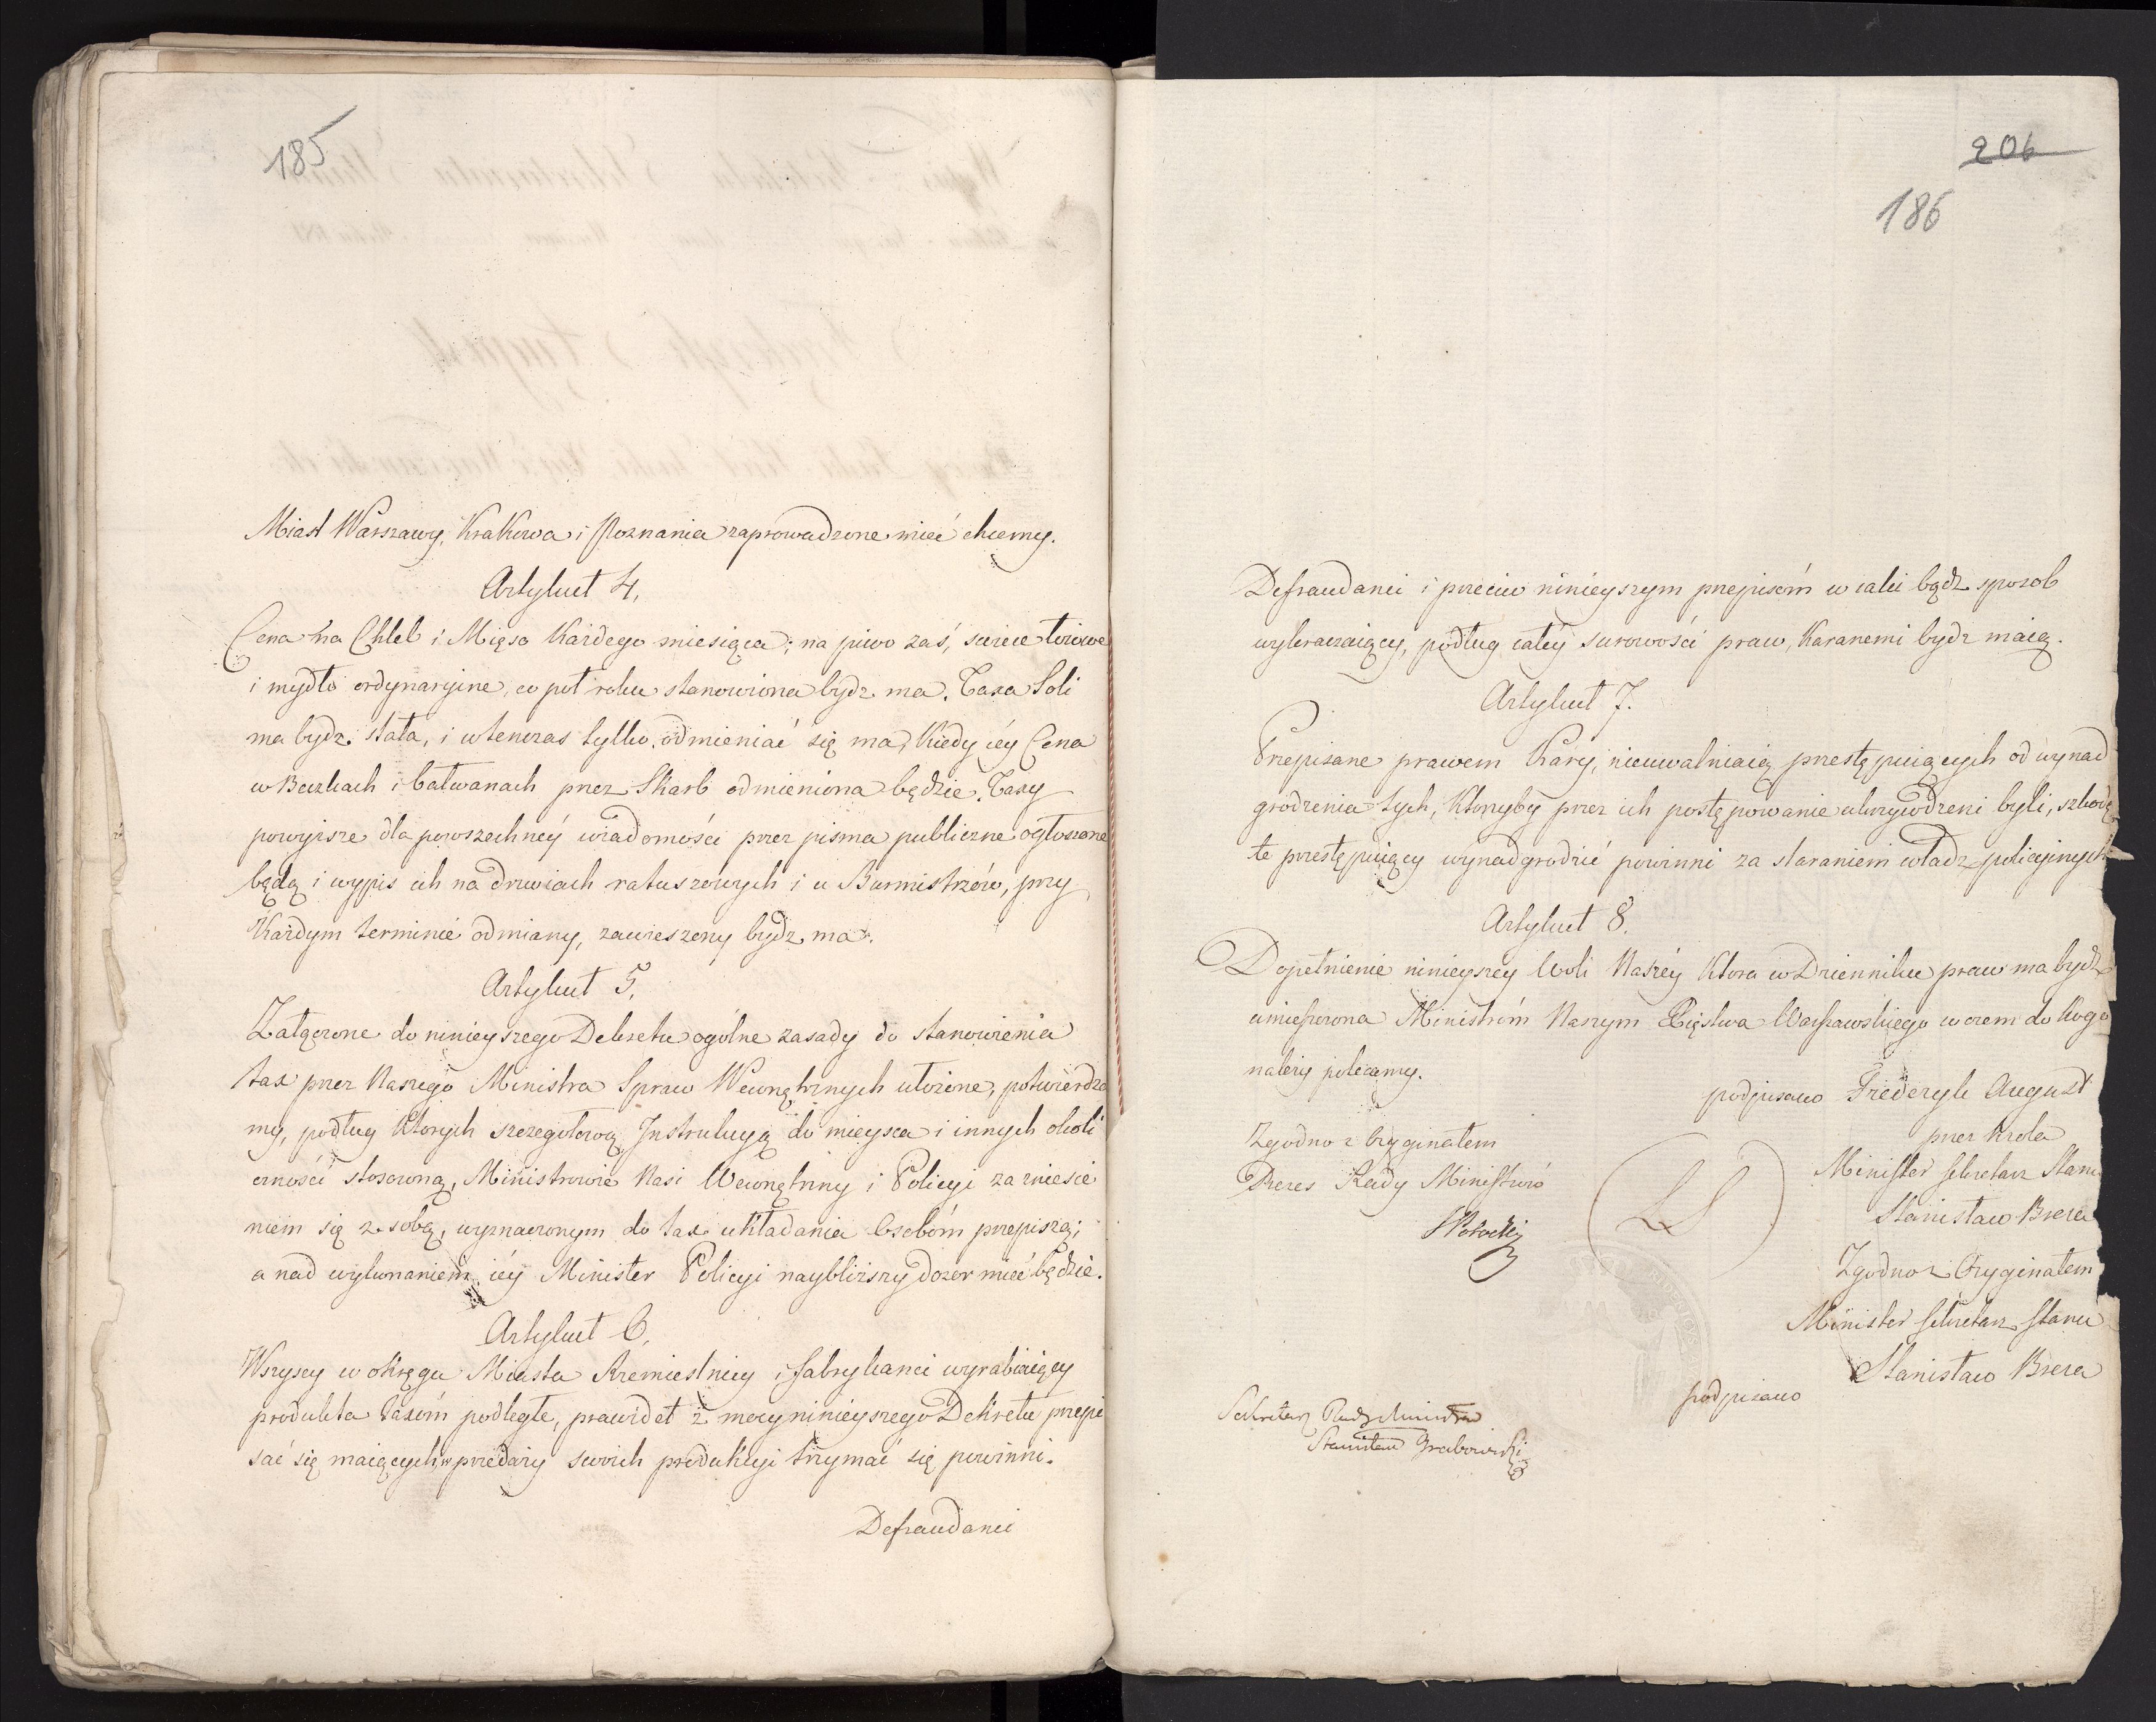 185
Miast Warszawy, Krakowa i Poznania zaprowadzone mieć chcemy.
Artykuł 4.
Cena na Chleb i Mięso Każdego miesiąca; na piwo zaś, świece łoiowe
i mydło ordynaryine, co pół roku stanowiona bydź ma. Taxa Soli
ma bydź stała, i wtenczas tylko odmieniać się ma, Kiedy iéy Cena
w Beczkach i bałwanach przez Skarb odmieniona będzie. Taxy
powyższe dla powszechnéy wiadomości przez pisma publiczne ogłoszone
będą i wypis ich na drzwiach ratuszowych i u Burmistrzów, przy
Każdym terminie odmiany, zawieszony bydź ma.
Artykuł 5.
Załączone do ninieyszego Dekretu ogólne zasady do stanowienia
tax przez Naszego Ministra Spraw Wewnętrznych ułożone, potwierdza
my, podług Których szczegółową Instrukcyą do mieysca i innych okoli
czności stosowną, Ministrowie Nasi Wewnętrzny i Policyi za zniesie
niem się z sobą, wyznaczonym do tax układania Osobóm przepiszą;
a nad wykonaniem iéy Minister Policyi naybliższy dozor mieć będzie.
Artykuł 6.
Wszyscy w okręgu Miasta Rzemieślnicy i fabrykanci wyrabiaiący
produkta Taxóm podległe, prawideł z mocy ninieyszego Dekretu przepi
sać się maiących w przedaży swoich produkcyi trzymać się powinni.
Defraudanci
206
186
Defraudanci i przeciw ninieyszym przepisóm w iaki bądź sposob
wykraczaiący, podług całéy surowości praw, Karanemi bydź maią.
Artykuł 7.
Przepisane prawem Kary, nieuwalniaią przestępuiących od wynad
grodzenia tych, Którzyby przez ich postępowanie ukrzywdzeni byli, szkodę
te przestępuiący wynadgrodzić powinni za staraniem władz policyinych
Artykuł 8.
Dopełnienie ninieyszey Woli Naszéy Ktora w Dzienniku praw ma bydź
umieszczona Ministróm Naszym Xięstwa Warszawskiego w czem do Kogo
należy polecamy.
podpisano Frederyk August
przez Krola
Minister Sekretarz Stanu
Stanisław Breza
Zgodno z Oryginałem
Prezes Rady Ministrów
SPotocki
LS
Zgodno z Oryginałem
Minister Sekretarz Stanu
Stanisław Breza
podpisano
Sekretarz Rady Ministrów
Stanisław Grabowski